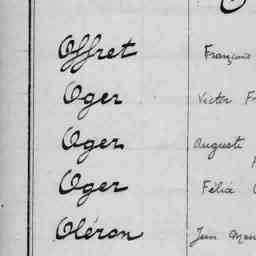 Offret Françoise
Oger Victor
Oger Auguste
Oger Félix
Oléron Jean